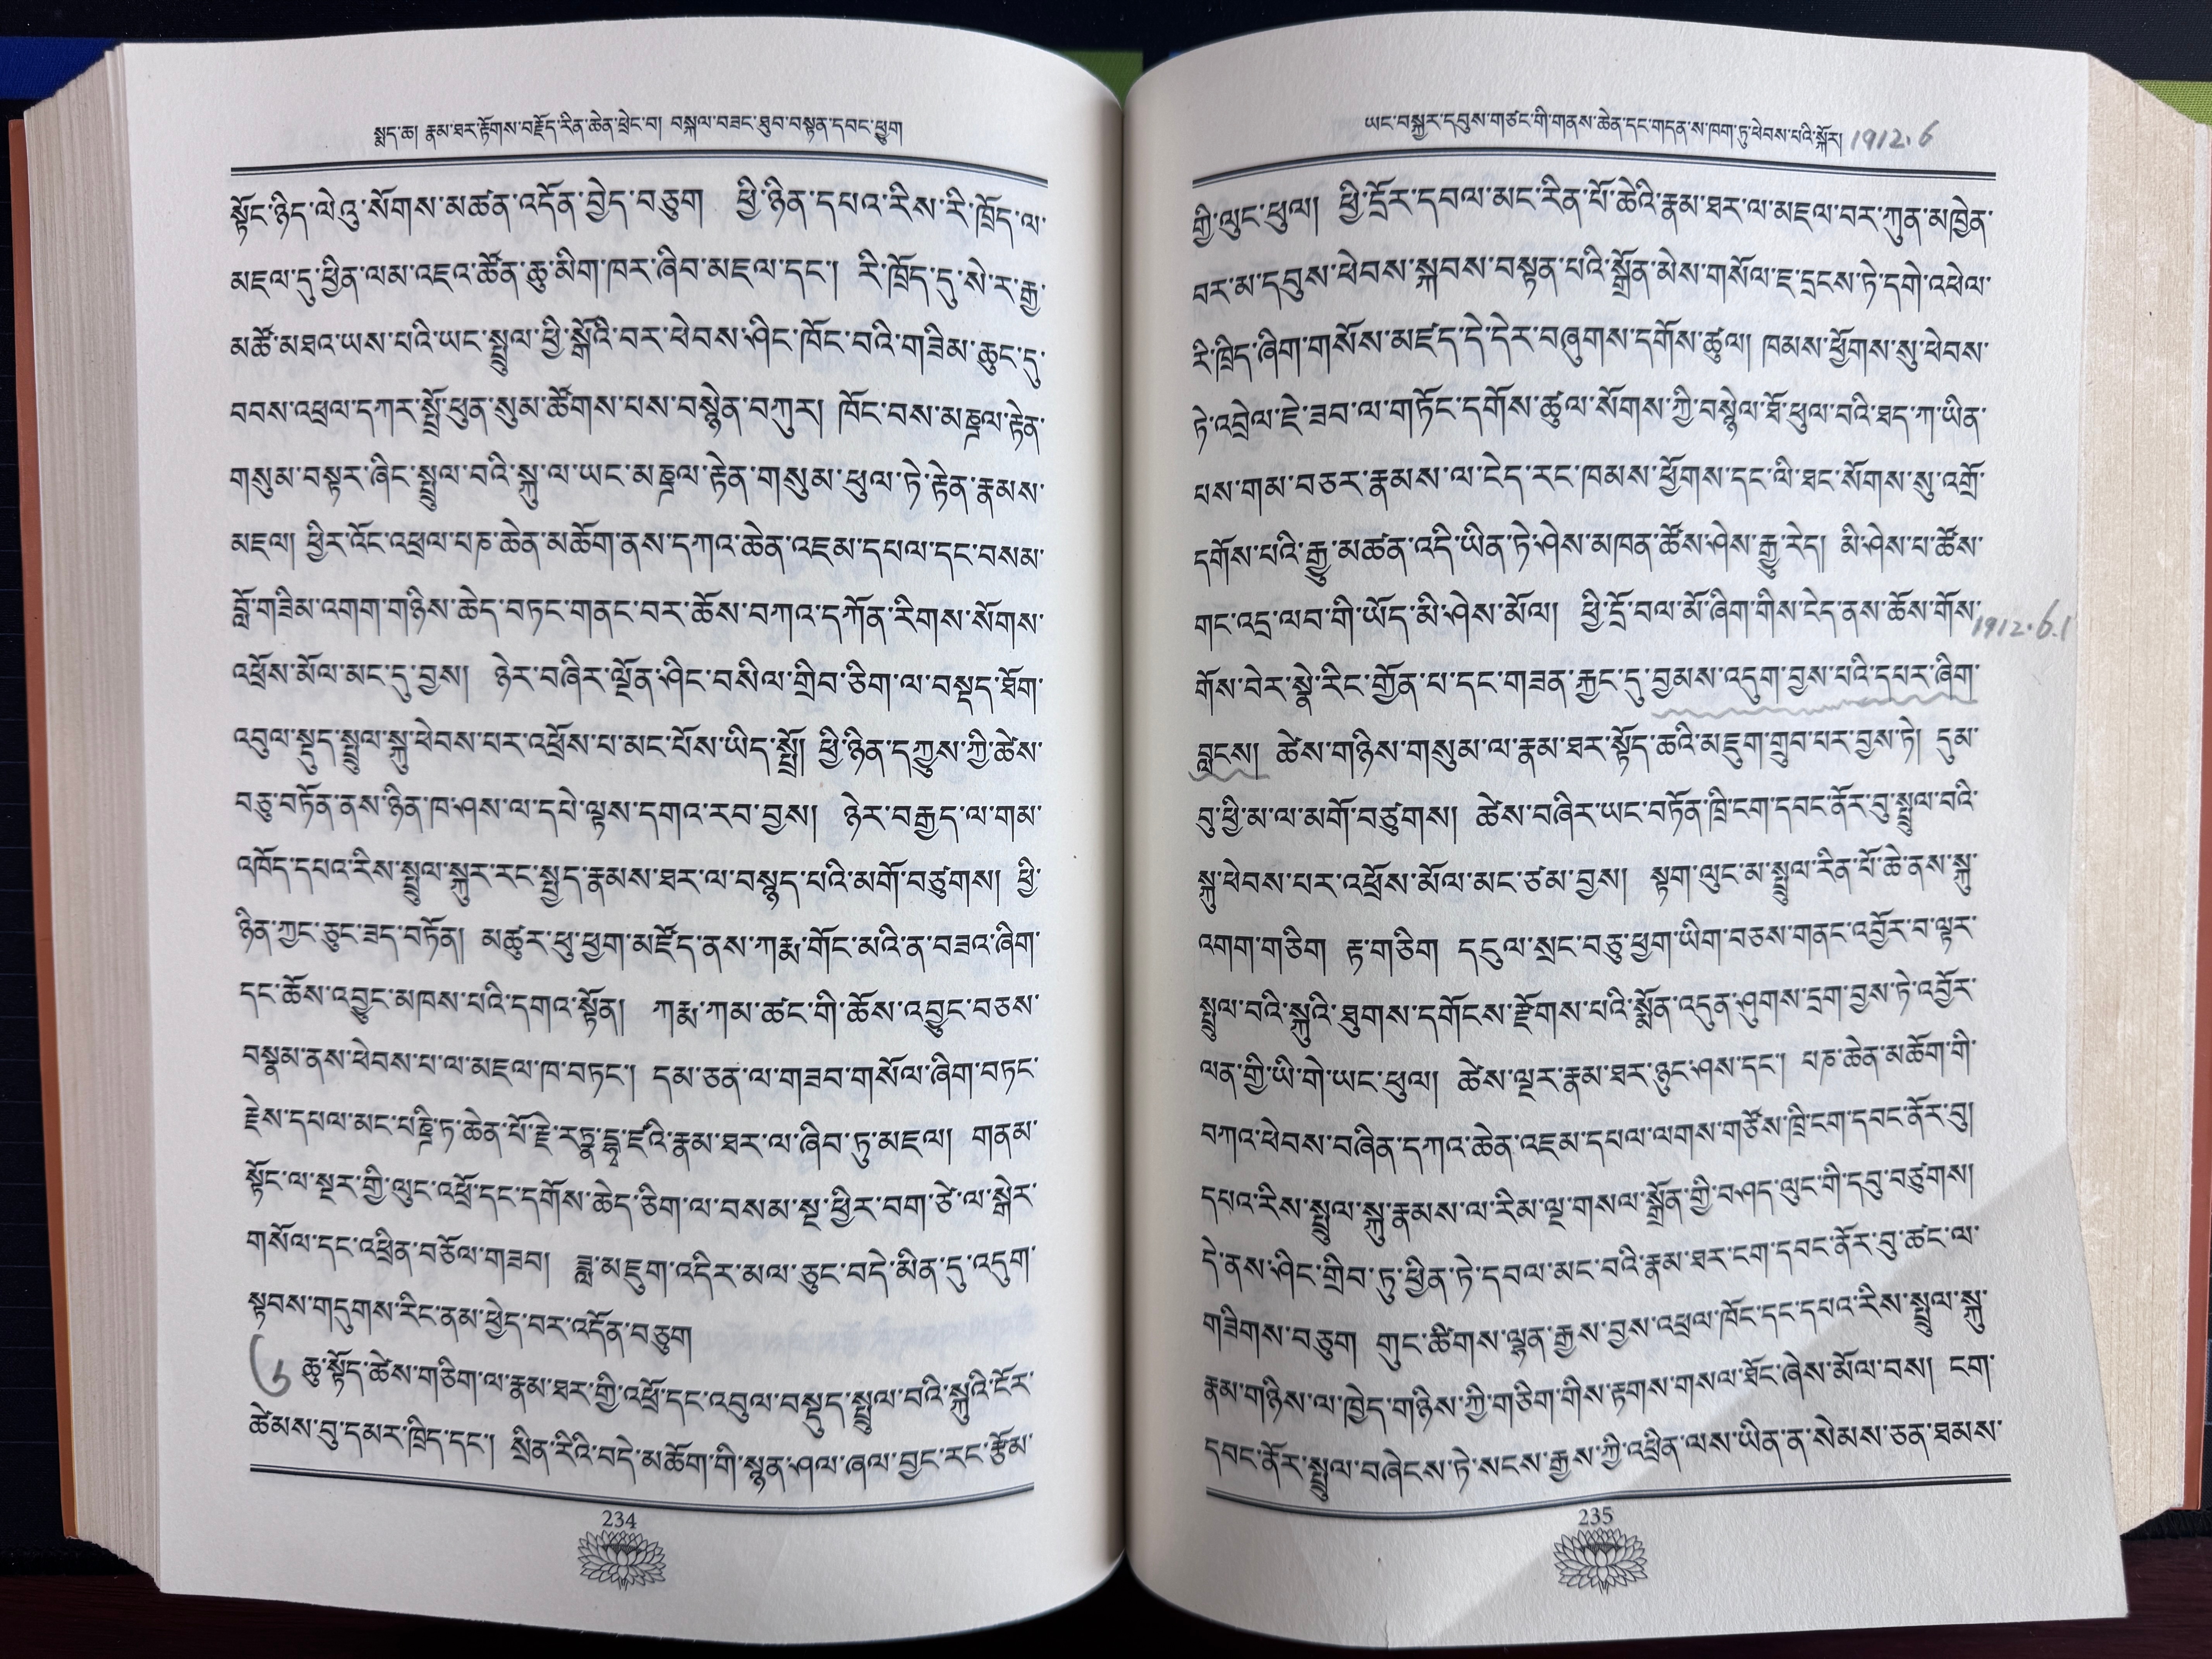 སྨད་ཆ། རྣམ་ཐར་རྟོགས་བརྗོད་རིན་ཆེན་ཕྲེང་བ། བསྐལ་བཟང་ཐུབ་བསྟན་དབང་ཕྱུག
སྟོང་ཉིད་ལེའུ་སོགས་མཚན་འདོན་བྱེད་བཅུག ཕྱི་ཉིན་དཔའ་རིས་རི་ཁྲོད་ལ་
མཇལ་དུ་ཕྱིན་ལམ་འཇའ་ཚོན་ཆུ་མིག་ཁར་ཞིབ་མཇལ་དང་། རི་ཁྲོད་དུ་སེ་ར་རྒྱ་
མཚོ་མཐའ་ཡས་པའི་ཡང་སྤྲུལ་ཕྱི་སྒོའི་བར་ཕེབས་ཤིང་ཁོང་བའི་གཟིམ་ཆུང་དུ་
བབས་འཕྲལ་དཀར་སྤྲོ་ཕུན་སུམ་ཚོགས་པས་བསྙེན་བཀུར། ཁོང་བས་མཎྜལ་རྟེན་
གསུམ་བསྟར་ཞིང་སྤྲུལ་བའི་སྐུ་ལ་ཡང་མཎྜལ་རྟེན་གསུམ་ཕུལ་ཏེ་རྟེན་རྣམས་
མཇལ། ཕྱིར་འོང་འཕྲལ་པཎ་ཆེན་མཆོག་ནས་དཀའ་ཆེན་འཇམ་དཔལ་དང་བསམ་
བློ་གཟིམ་འགག་གཉིས་ཆེད་བཏང་གནང་བར་ཆོས་བཀའ་དཀོན་རིགས་སོགས་
འཕྲོས་མོལ་མང་དུ་བྱས། ཉེར་བཞིར་ལྗོན་ཤིང་བསིལ་གྲིབ་ཅིག་ལ་བསྡད་ཐོག་
འབུལ་སྡུད་སྤྲུལ་སྐུ་ཕེབས་པར་འཕྲོས་པ་མང་པོས་ཡིད་སྤྲོ། ཕྱི་ཉིན་དཀྱུས་ཀྱི་ཚེས་
བཅུ་བཏོན་ནས་ཉིན་ཁ་ཤས་ལ་དཔེ་ལྟས་དགའ་རབ་བྱས། ཉེར་བརྒྱད་ལ་གམ་
འཁོད་དཔའ་རིས་སྤྲུལ་སྐུར་རང་སྤྱད་རྣམས་ཐར་ལ་བསྟུད་པའི་མགོ་བཙུགས། ཕྱི་
ཉིན་ཀྱང་ཅུང་ཟད་བཏོན། མཚུར་ཕུ་ཕྱག་མཛོད་ནས་ཀརྨ་གོང་མའི་ན་བཟའ་ཞིག་
དང་ཆོས་འབྱུང་མཁས་པའི་དགའ་སྟོན། ཀརྨ་ཀམ་ཚང་གི་ཆོས་འབྱུང་བཅས་
བསྣམ་ནས་ཕེབས་པ་ལ་མཇལ་ཁ་བཏང་། དམ་ཅན་ལ་གཟབ་གསོལ་ཞིག་བཏང་
རྗེས་དཔལ་མང་པཎྜི་ཏ་ཆེན་པོ་རྗེ་རཏྣ་དྷྭ་ཛའི་རྣམ་ཐར་ལ་ཞིབ་ཏུ་མཇལ། གནམ་
སྟོང་ལ་སྔར་གྱི་ལུང་འཕྲོ་དང་དགོས་ཆེད་ཅིག་ལ་བསམ་སྔ་ཕྱིར་བག་ཙེ་ལ་སྒེར་
གསོལ་དང་འཕྲིན་བཅོལ་གཟབ། ཟླ་མཇུག་འདིར་མལ་ཅུང་བདེ་མིན་དུ་འདུག་
སྟབས་གདུགས་རིང་ནམ་ཕྱེད་བར་འདོན་བཅུག
6 ཆུ་སྟོད་ཚེས་གཅིག་ལ་རྣམ་ཐར་གྱི་འཕྲོ་དང་འབུལ་བསྡུད་སྤྲུལ་བའི་སྐུའི་ངོར་
ཚེམས་བུ་དམར་ཁྲིད་དང་། སྲིན་རིའི་བདེ་མཆོག་གི་སྙན་ཤལ་ཞལ་བྱང་རང་རྩོམ་
234
ཡང་བསྐྱར་དབུས་གཙང་གི་གནས་ཆེན་དང་གདན་ས་ཁག་ཏུ་ཕེབས་པའི་སྐོར། 1912.6
གྱི་ལུང་ཕུལ། ཕྱི་དྲོར་དབལ་མང་རིན་པོ་ཆེའི་རྣམ་ཐར་ལ་མཇལ་བར་ཀུན་མཁྱེན་
བར་མ་དབུས་ཕེབས་སྐབས་བསྟན་པའི་སྒྲོན་མེས་གསོལ་ཇ་དྲངས་ཏེ་དགེ་འཕེལ་
རི་ཁྲིད་ཞིག་གསོས་མཛད་དེ་དེར་བཞུགས་དགོས་ཚུལ། ཁམས་ཕྱོགས་སུ་ཕེབས་
ཏེ་འབྲེལ་ཇེ་ཟབ་ལ་གཏོང་དགོས་ཚུལ་སོགས་ཀྱི་བསྙེལ་ཐོ་ཕུལ་བའི་ཐད་ཀ་ཡིན་
པས་གམ་བཅར་རྣམས་ལ་ངེད་རང་ཁམས་ཕྱོགས་དང་ལི་ཐང་སོགས་སུ་འགྲོ་
དགོས་པའི་རྒྱུ་མཚན་འདི་ཡིན་ཏེ་ཤེས་མཁན་ཚོས་ཤེས་རྒྱུ་རེད། མི་ཤེས་པ་ཚོས་
གང་འདྲ་ལབ་གི་ཡོད་མི་ཤེས་མོལ། ཕྱི་དྲོ་བལ་མོ་ཞིག་གིས་ངེད་ནས་ཆོས་གོས་ 1912.6.1
གོས་བེར་སྣེ་རིང་གྱོན་པ་དང་གཟན་རྐྱང་དུ་བྱམས་འདུག་བྱས་པའི་དཔར་ཞིག་
བླངས། ཚེས་གཉིས་གསུམ་ལ་རྣམ་ཐར་སྟོད་ཆའི་མཇུག་གྲུབ་པར་བྱས་ཏེ། དུམ་
བུ་ཕྱི་མ་ལ་མགོ་བཙུགས། ཚེས་བཞིར་ཡང་བཏོན་ཁྲི་ངག་དབང་ནོར་བུ་སྤྲུལ་བའི་
སྐུ་ཕེབས་པར་འཕྲོས་མོལ་མང་ཙམ་བྱས། སྟག་ལུང་མ་སྤྲུལ་རིན་པོ་ཆེ་ནས་སྐུ་
འགག་གཅིག རྟ་གཅིག དངུལ་སྲང་བཅུ་ཕྱག་ཡིག་བཅས་གནང་འབྱོར་བ་ལྟར་
སྤྲུལ་བའི་སྐུའི་ཐུགས་དགོངས་རྫོགས་པའི་སྨོན་འདུན་ཤུགས་དྲག་བྱས་ཏེ་འབྱོར་
ལན་གྱི་ཡི་གེ་ཡང་ཕུལ། ཚེས་ལྔར་རྣམ་ཐར་ཉུང་ཤས་དང་། པཎ་ཆེན་མཆོག་གི་
བཀའ་ཕེབས་བཞིན་དཀའ་ཆེན་འཇམ་དཔལ་ལགས་གཙོས་ཁྲི་ངག་དབང་ནོར་བུ།
དཔའ་རིས་སྤྲུལ་སྐུ་རྣམས་ལ་རིམ་ལྔ་གསལ་སྒྲོན་གྱི་བཤད་ལུང་གི་དབུ་བཙུགས།
དེ་ནས་ཤིང་གྲིབ་ཏུ་ཕྱིན་ཏེ་དབལ་མང་བའི་རྣམ་ཐར་ངག་དབང་ནོར་བུ་ཚང་ལ་
གཟིགས་བཅུག གུང་ཚིགས་ལྷན་རྒྱས་བྱས་འཕྲལ་ཁོང་དང་དཔའ་རིས་སྤྲུལ་སྐུ་
རྣམ་གཉིས་ལ་ཁྱེད་གཉིས་ཀྱི་གཅིག་གིས་རྟགས་གསལ་ཐོང་ཞེས་མོལ་བས། ངག་
དབང་ནོར་སྤྲུལ་བཞེངས་ཏེ་སངས་རྒྱས་ཀྱི་འཕྲིན་ལས་ཡིན་ན་སེམས་ཅན་ཐམས་
235